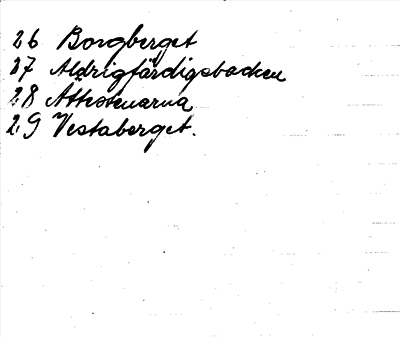 26 Borgberget
27 Aldrigfärdigsbacken
28 Åttestenarna
29 Vestaberget.